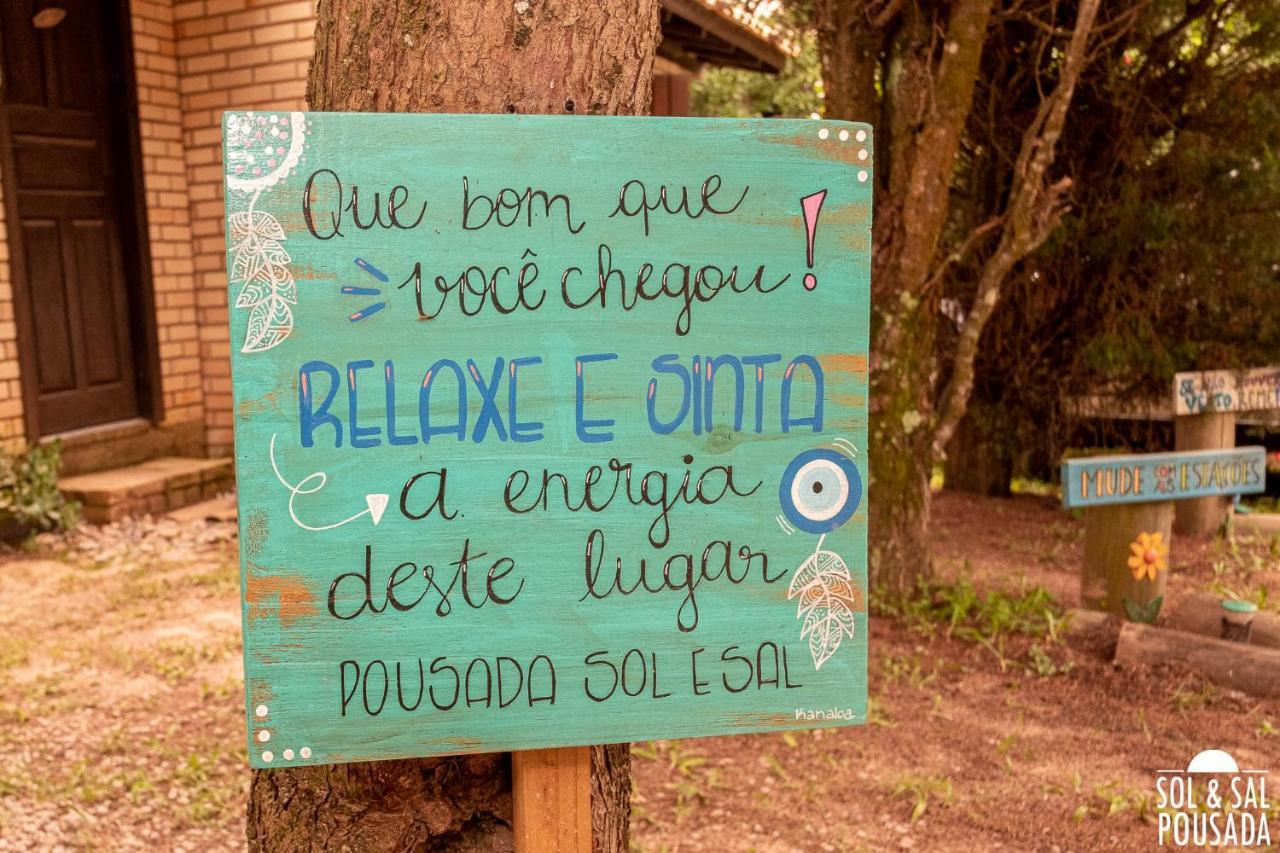 Que bom que
você chegou!
RELAXE E SINTA
a energia
deste lugar
POUSADA SOL E SAL
Kanaloa
MUDE COM AS ESTAÇÕES
SOL & SAL
POUSADA